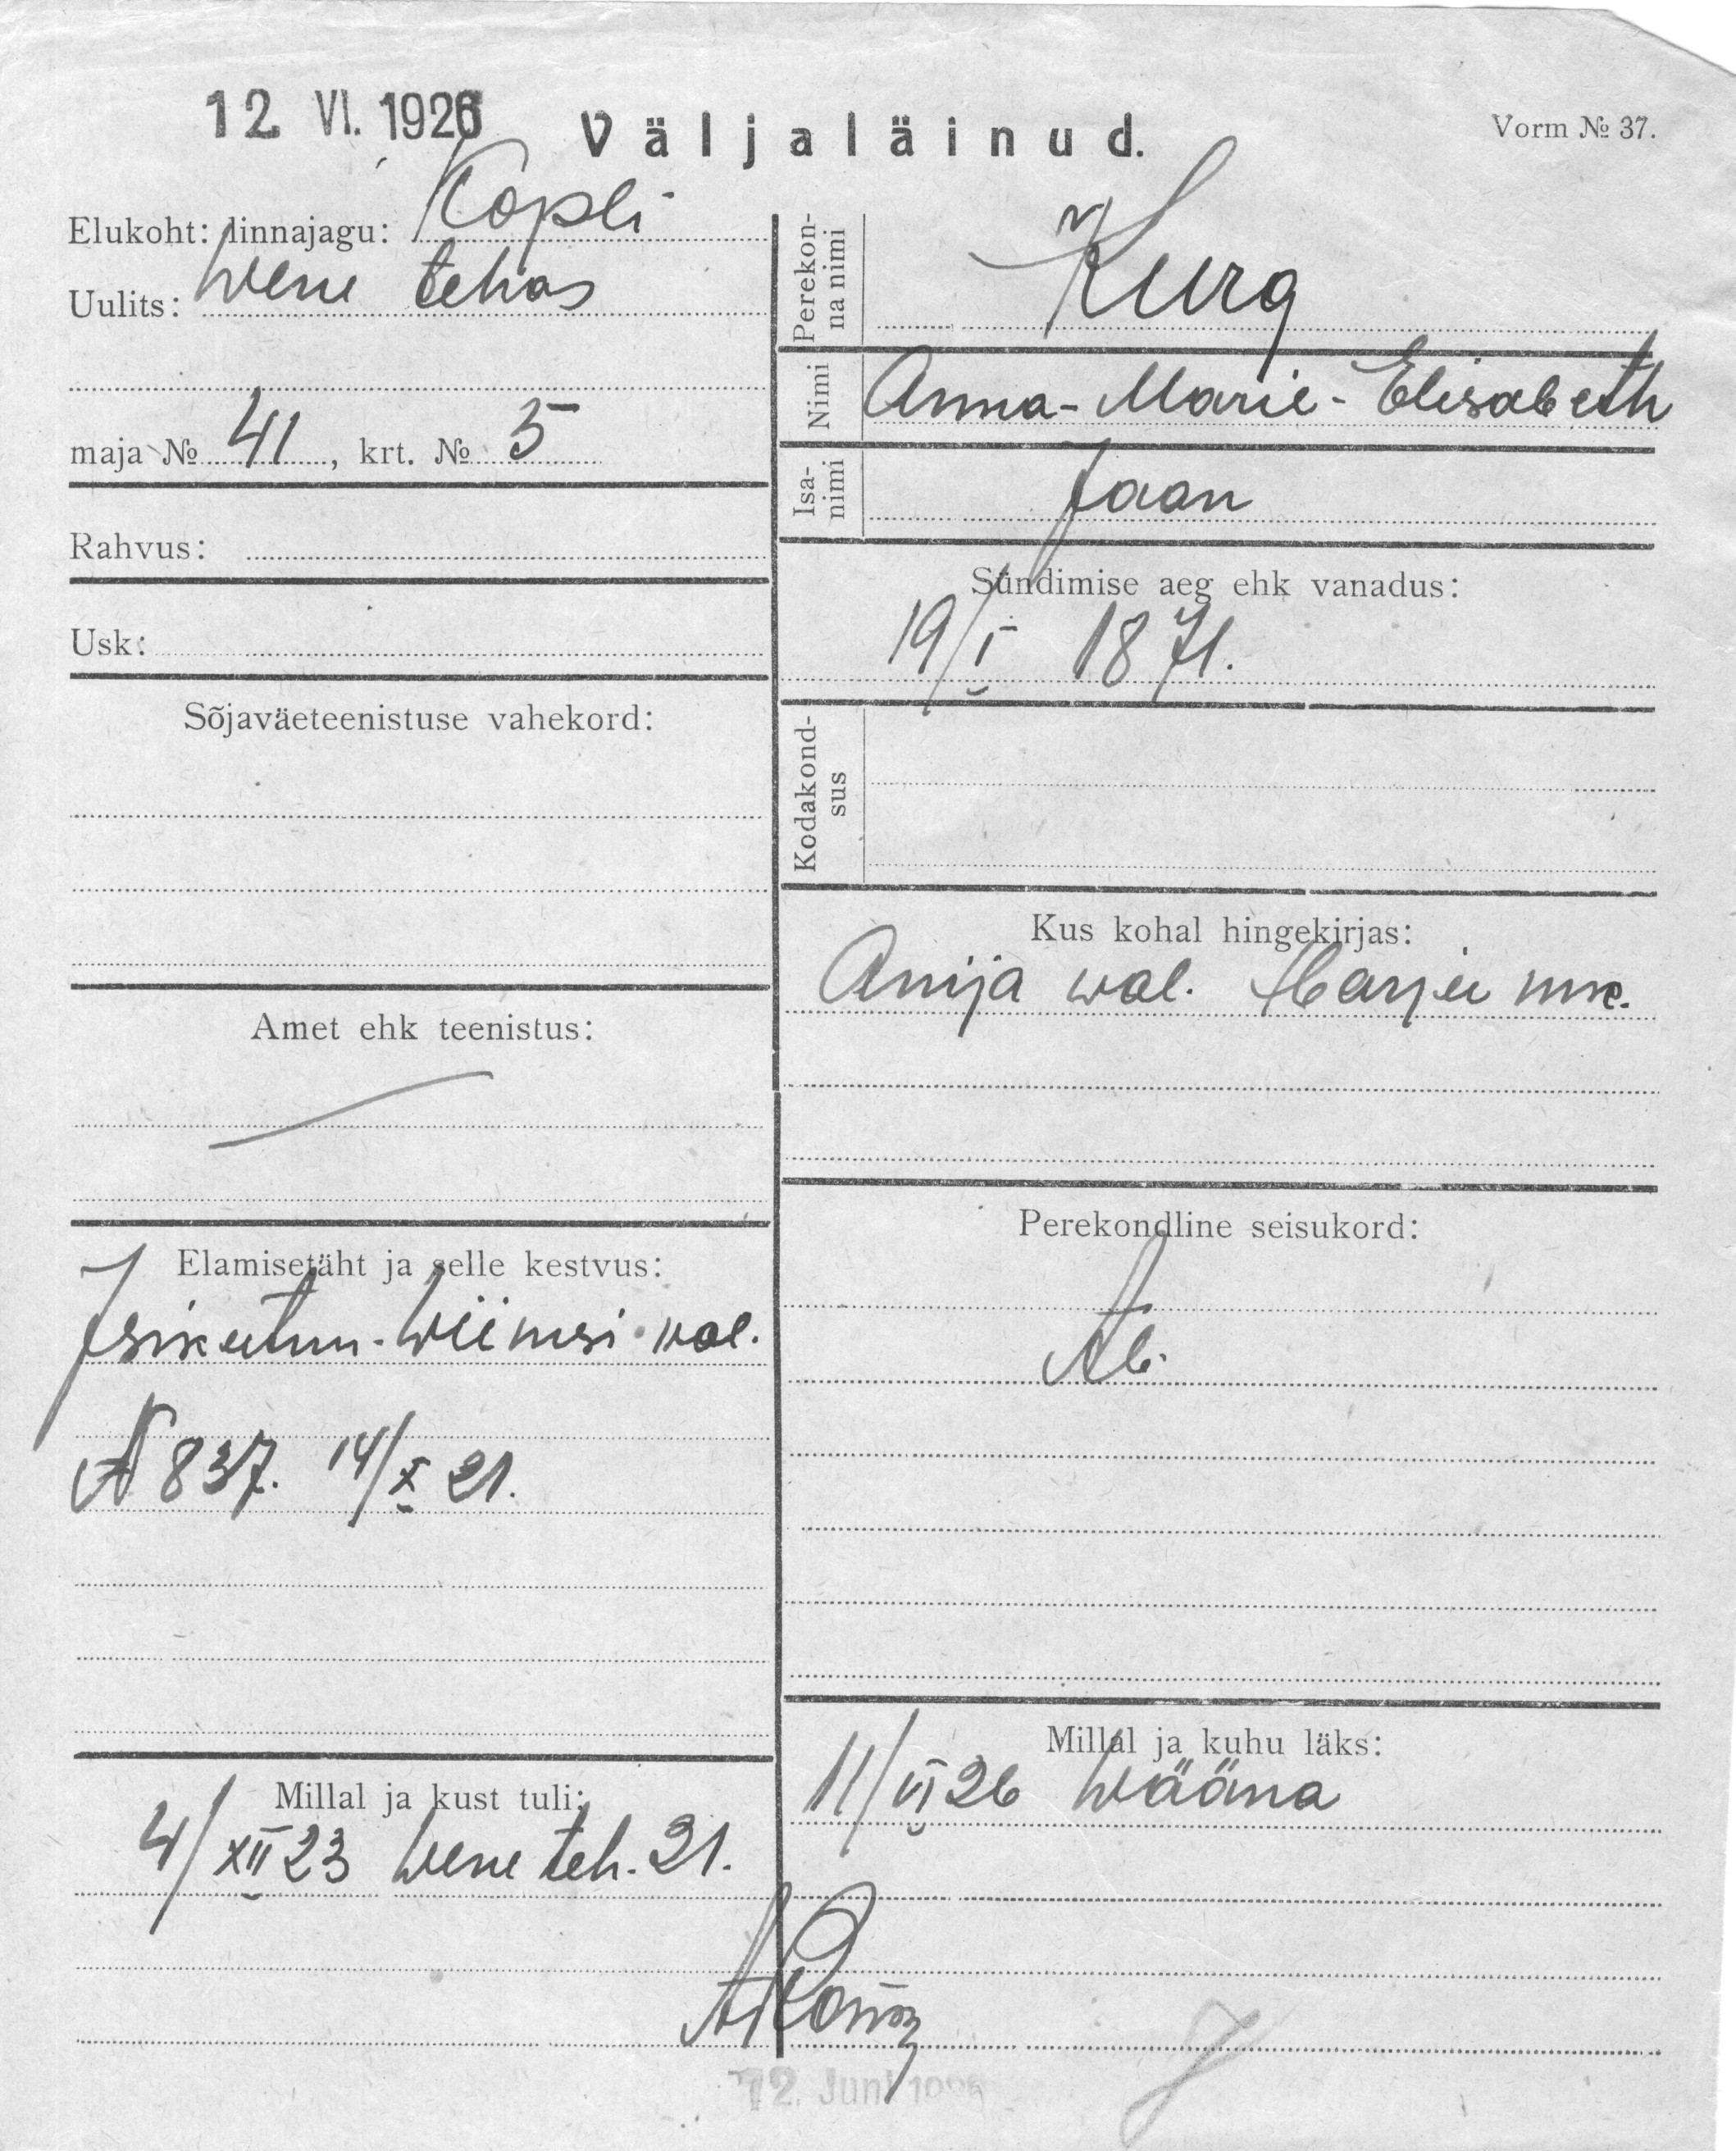 12. VI. 1926
Väljaläinud.
Vorm № 37.
Elukoht: linnajagu: Kopli
Uulits: Wene tehas
maja № 41, krt. № 5
Rahvus:
Usk:
Sõjaväeteenistuse vahekord:
Amet ehk teenistus:
Elamisetäht ja selle kestvus:
Isikutun. Wiimsi wal.
№ 837. 14/X 21.
Millal ja kust tuli:
4/XII 23 Wene teh. 21.
Perekonna nimi
Kurg
Nimi
Anna-Marie-Elisabeth
Isanimi
Jaan
Sündimise aeg ehk vanadus:
19/I 1871.
Kodakondsus
Kus kohal hingekirjas:
Anija wal. Harju mk.
Perekondline seisukord:
Ab.
Millal ja kuhu läks:
11/VI 26 Wääna
12. Juni 1926